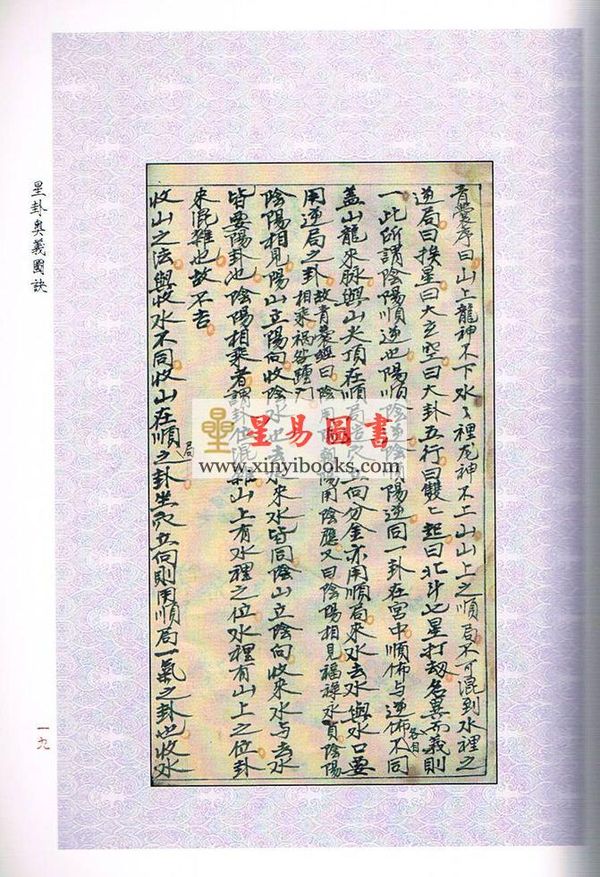 青囊序曰山上龍神不下水水裡龙神不上山山上之順局不可混到水裡之
逆局曰挨星曰大玄空曰大卦五行曰雙雙起曰北斗七星打劫名異而義則
一此所謂陰陽順逆也陽順陰逆陰陽逆同一卦在宮中順佈与逆佈不同
各自
盖山龍來脉與山尖頂在順局造穴立向分金亦用順局來水去水與水口要
用逆局之卦故青囊經曰陰用陽朝陽用陰應又曰陰陽相見福祿永貞陰陽
相乘禍咎踵门
陰陽相見陽山立陽向收陰水也來水皆同陰山立陰向收來水与去水
皆要陽卦也陰陽相乘者謂卦位混雜山上有水裡之位水裡有山上之位卦
來混雜也故不吉
收山之法與收水不同收山在順局之卦坐穴立向則用順局一氣之卦也收水
星卦奥義圖訣
一九
星易圖書
www.xinyibooks.com